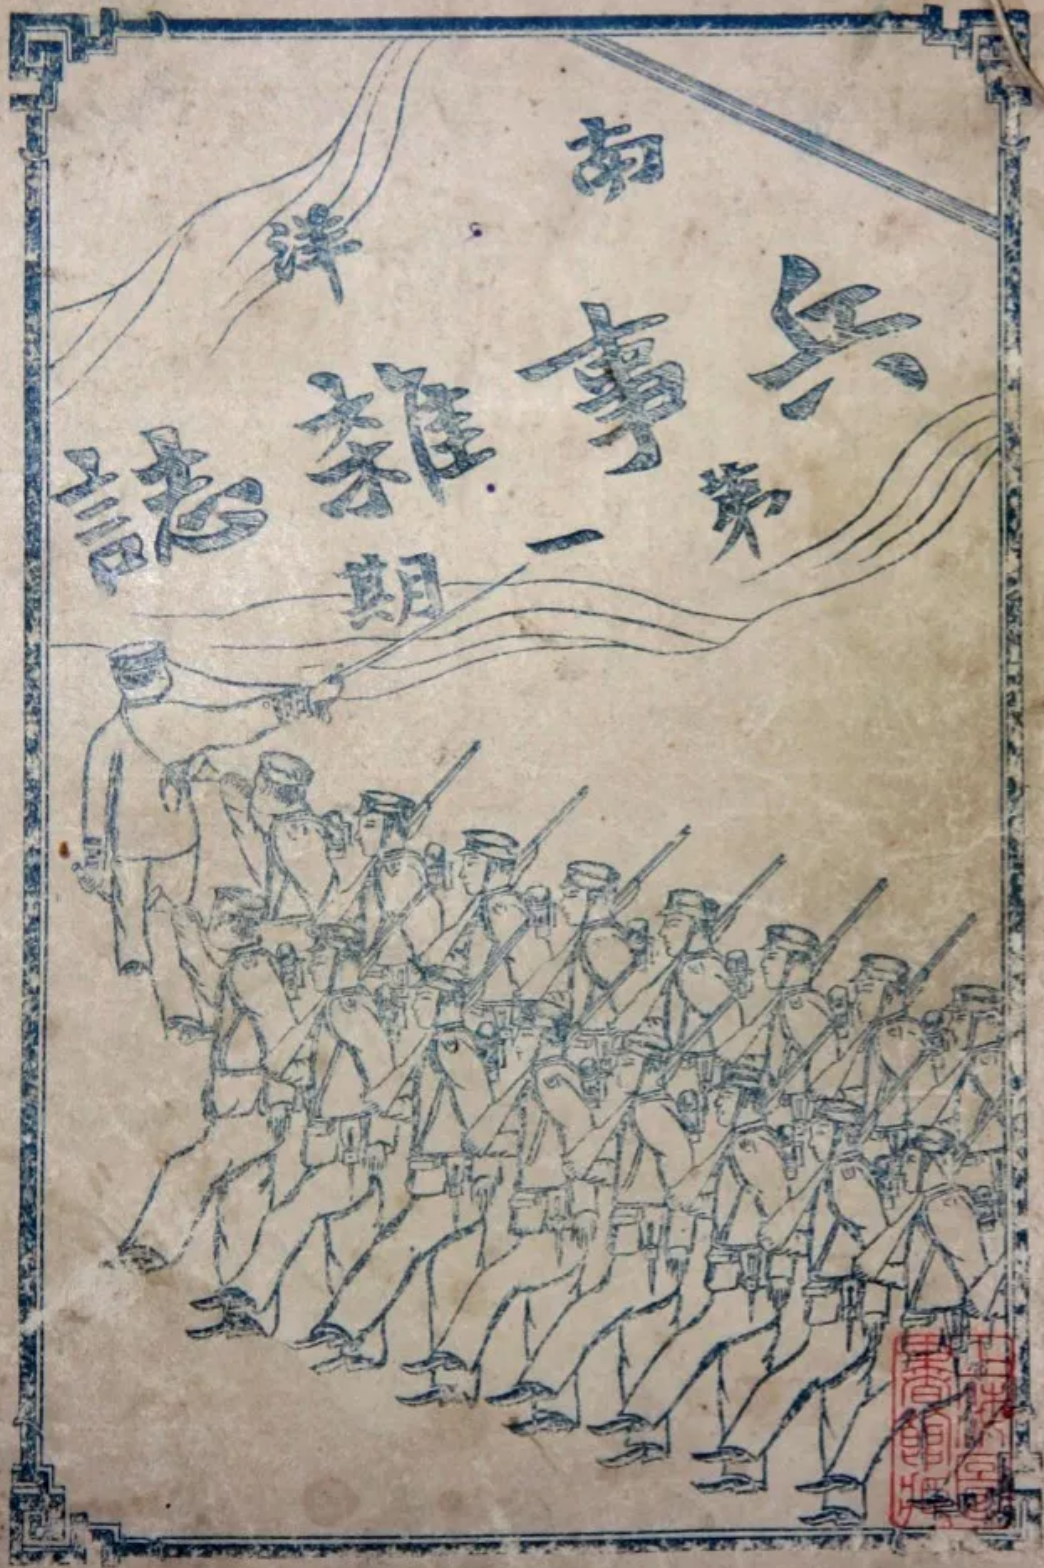 南洋
兵事雜誌
第一期